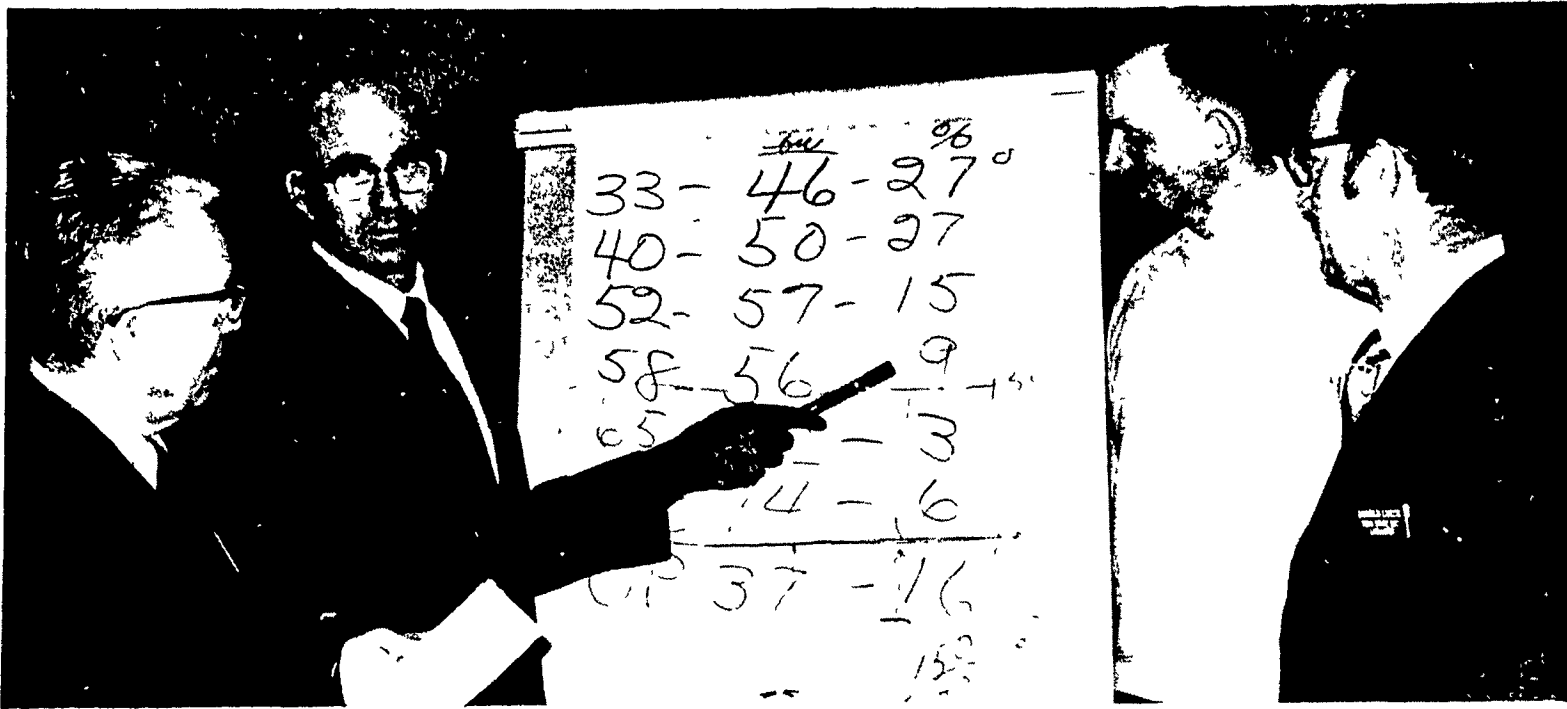 bu %
33 - 46 - 27
40 - 50 - 27
52 - 57 - 15
58 - 56 9
65 - 3
4 - 6
37 - 16